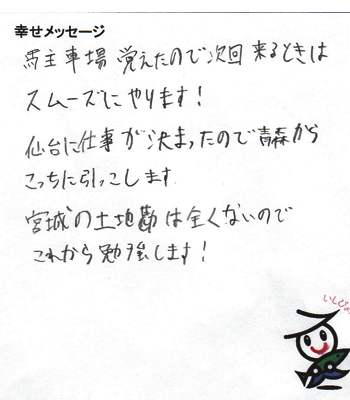 幸せメッセージ
馬主車場 覚えたので次回 来るときは
スムーズにやります!
仙台に仕事が決まったので青森から
こっちに引っこします
宮城の土地勘は全くないので
これから勉強します!